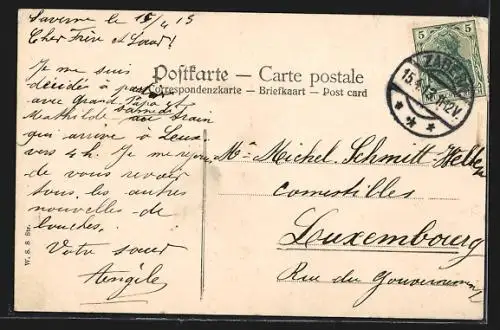 Saverne le 15/4 13
Cher Frère et Sœur!
Je me suis
décidés à partir
avec Grand Papa et
Mathilde samedi au train
qui arrive à
vers 4 h. Je me réjouis
de vous revoir
tous les autres
nouvelles de
bouches.
Votre sœur
Angèle
W. S. S. Str.
Postkarte — Carte postale
Correspondenzkarte — Briefkaart — Post card
5 5
ZABERN
15.4.13.
Mr Michel Schmitt
comestibles
Luxembourg
Rue du Gouvernement